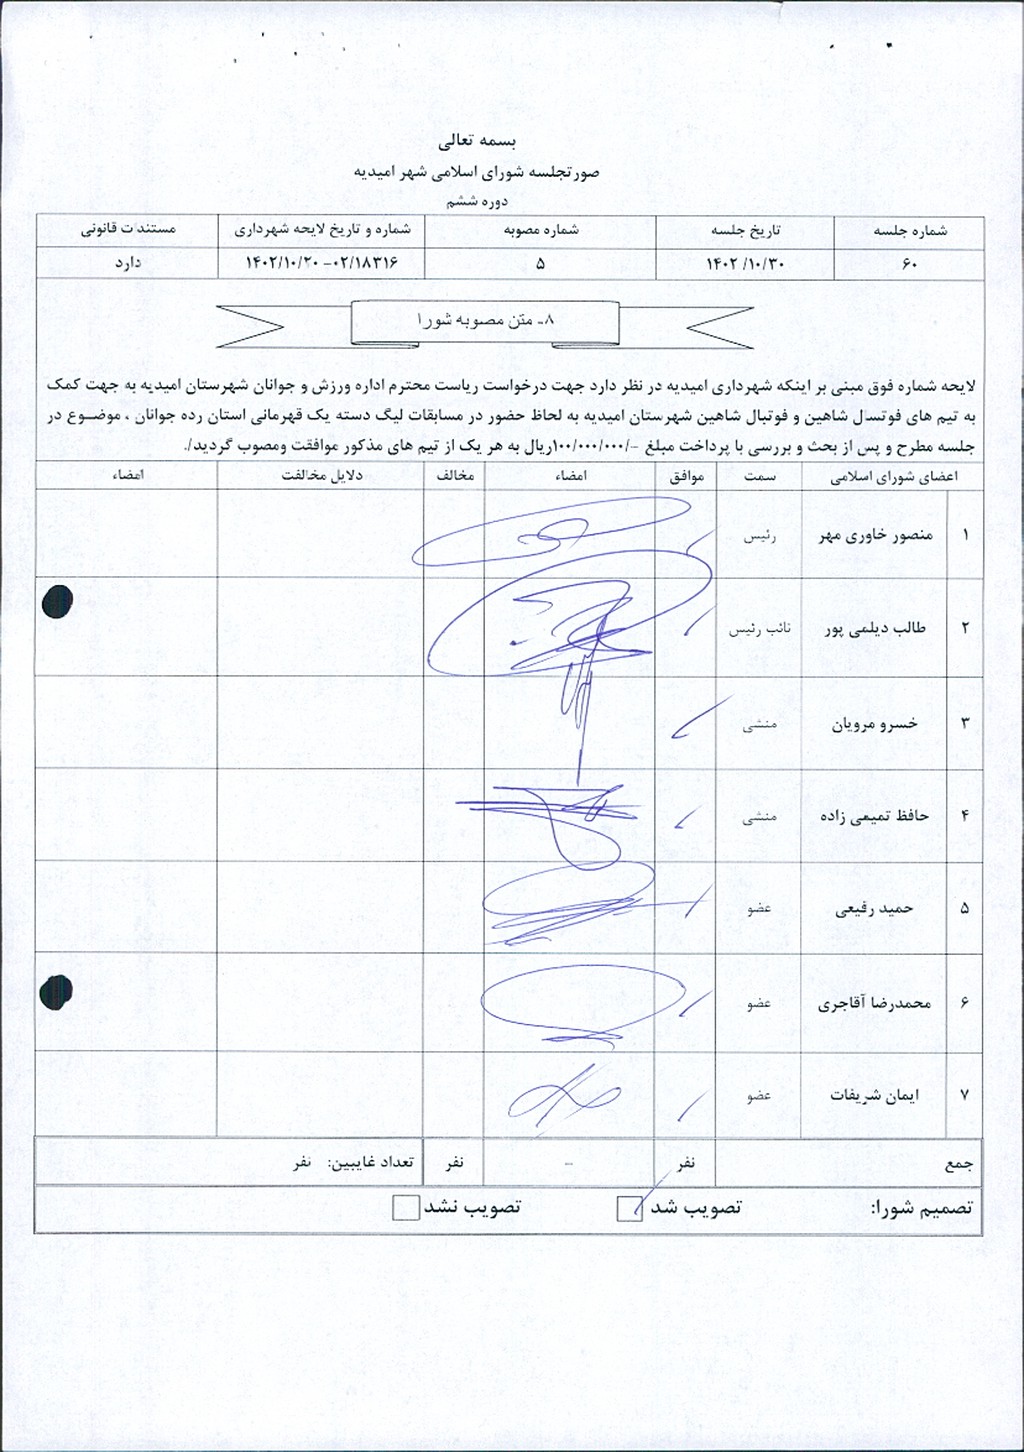 بسمه تعالی
صورتجلسه شورای اسلامی شهر امیدیه
دوره ششم
شماره جلسه تاریخ جلسه شماره مصوبه شماره و تاریخ لایحه شهرداری مستندات قانونی
۶۰ ۱۴۰۲/۱۰/۳۰ ۵ ۰۲/۱۸۳۱۶-۱۴۰۲/۱۰/۲۰ دارد
۸- متن مصوبه شورا
لایحه شماره فوق مبنی بر اینکه شهرداری امیدیه در نظر دارد جهت درخواست ریاست محترم اداره ورزش و جوانان شهرستان امیدیه به جهت کمک
به تیم های فوتسال شاهین و فوتبال شاهین شهرستان امیدیه به لحاظ حضور در مسابقات لیگ دسته یک قهرمانی استان رده جوانان ، موضوع در
جلسه مطرح و پس از بحث و بررسی با پرداخت مبلغ -/۱۰۰/۰۰۰/۰۰۰ریال به هر یک از تیم های مذکور موافقت ومصوب گردید/.
اعضای شورای اسلامی سمت موافق امضاء مخالف دلایل مخالفت امضاء
۱ منصور خاوری مهر رئیس
۲ طالب دیلمی پور نائب رئیس
۳ خسرو مرویان منشی
۴ حافظ تمیمی زاده منشی
۵ حمید رفیعی عضو
۶ محمدرضا آقاجری عضو
۷ ایمان شریفات عضو
جمع نفر - نفر تعداد غایبین: نفر
تصمیم شورا: تصویب شد تصویب نشد